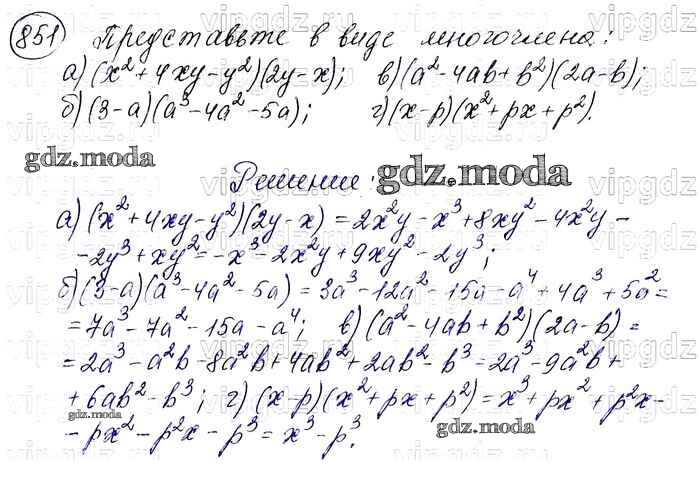 851 Представьте в виде многочлена:
а) (x²+4xy-y²)(2y-x); в) (a²-4ab+b²)(2a-b);
б) (3-a)(a³-4a²-5a); г) (x-p)(x²+px+p²).
gdz.moda
Решение: gdz.moda
а) (x²+4xy-y²)(2y-x) = 2x²y-x³+8xy²-4x²y-
-2y³+xy²=-x³-2x²y+9xy²-2y³;
б) (3-a)(a³-4a²-5a) = 3a³-12a²-15a-a⁴+4a³+5a²=
=7a³-7a²-15a-a⁴; в) (a²-4ab+b²)(2a-b)=
=2a³-a²b-8a²b+4ab²+2ab²-b³=2a³-9a²b+
+6ab²-b³; г) (x-p)(x²+px+p²)=x³+px²+p²x-
gdz.moda
-px²-p²x-p³=x³-p³.
gdz.moda